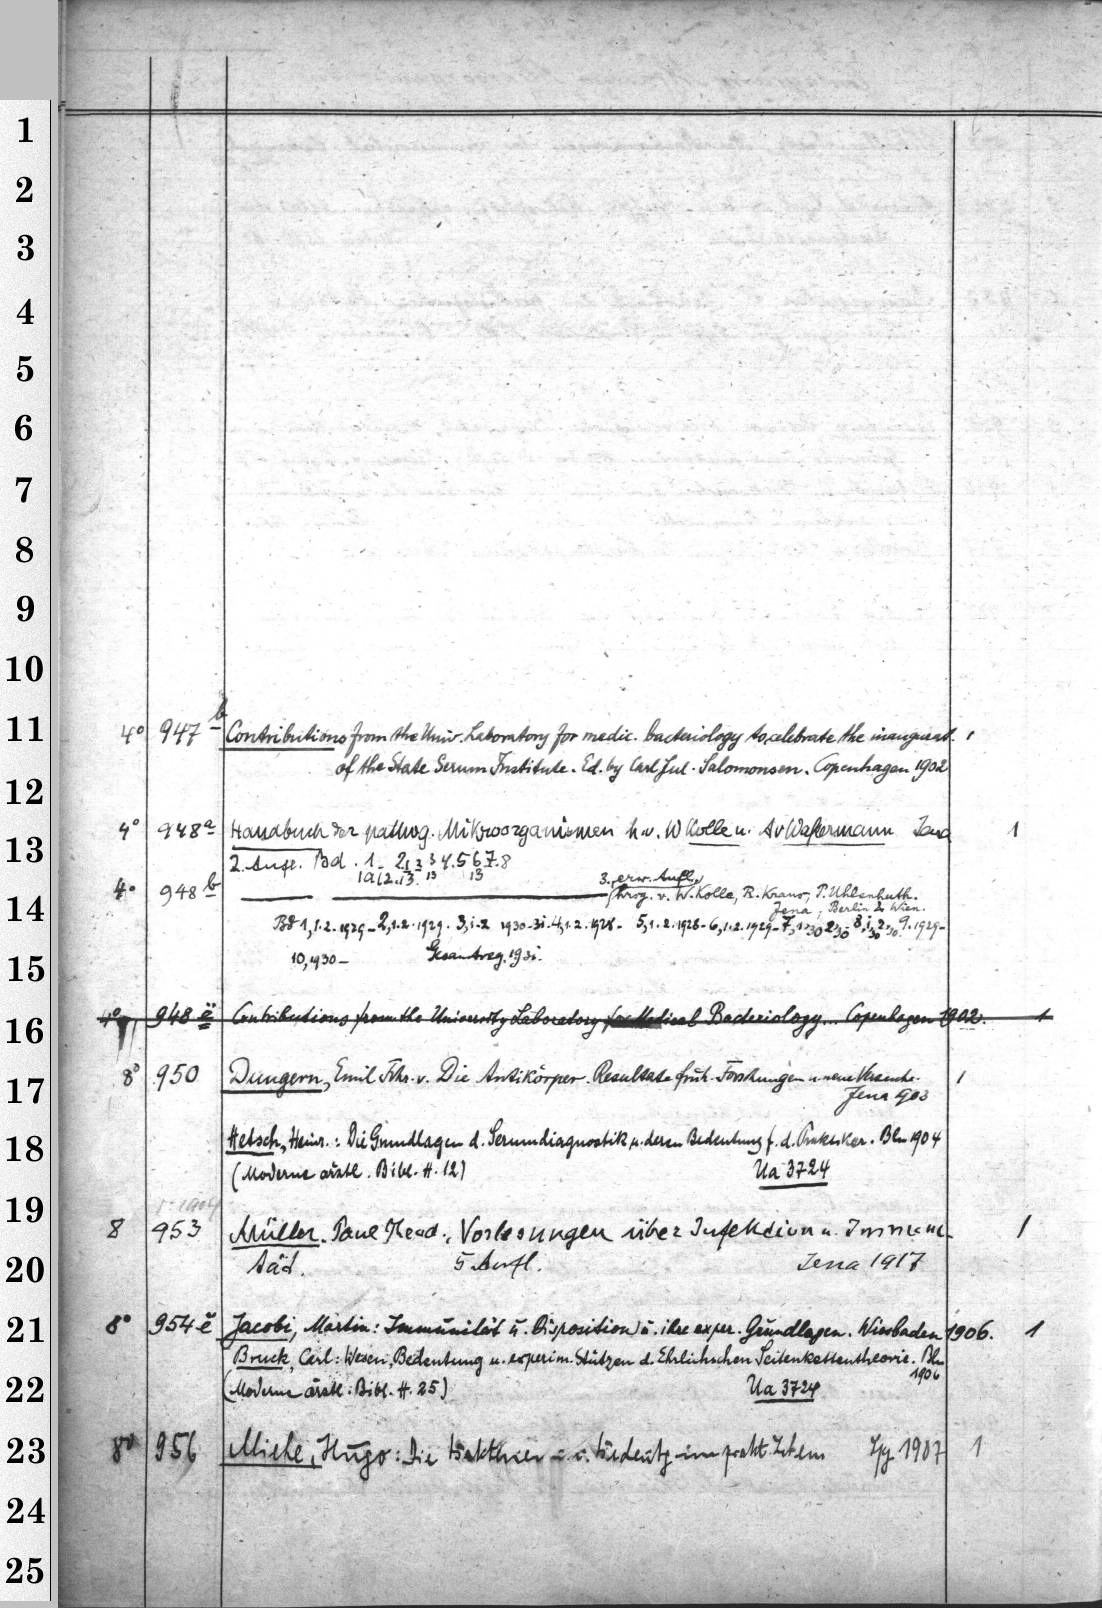 1
2
3
4
5
6
7
8
9
10
11
12
13
14
15
16
17
18
19
20
21
22
23
24
25
4° 947 b Contributions from the Univ. Laboratory for medic. bacteriology to celebrate the inaugurat. 1
of the State Serum Institute. Ed. by Carl Jul. Salomonsen. Copenhagen 1902
4° 948 a Handbuch der pathog. Mikroorganismen h. v. W Kolle u. A v Waßermann Jena 1
2. Aufl. Bd. 1 2 3 4. 5 6 7. 8
4° 948 b 3. erw. Aufl.
hrsg. v. W. Kolle, R. Kraus, P. Uhlenhuth.
Jena, Berlin u. Wien.
Bd 1,1.2. 1929 - 2,1.2. 1929. 3,1.2 1930-31. 4,1.2. 1928 - 5,1.2. 1928 - 6,1.2. 1929 - 9. 1929 -
10, 1930 - Gesamtreg. 1931.
4° 948 Contributions from the University Laboratory for Medical Bacteriology... Copenhagen 1902. 1
8° 950 Dungern, Emil Frhr. v. Die Antikörper. Resultate früh. Forschungen u. neue Versuche. 1
Jena 903
Hetsch, Heinr.: Die Grundlagen d. Serumdiagnostik u. deren Bedeutung f. d. Praktiker. Bln 1904
(Moderne ärztl. Bibl. H. 12) Ua 3724
8 953 Müller, Paul Theod., Vorlesungen über Infektion u. Immuni- 1
tät. 5 Aufl. Jena 1917
8° 954 Jacobi, Martin: Immunität u. Disposition u. ihre exper. Grundlagen. Wiesbaden 1906. 1
Bruck, Carl: Wesen, Bedeutung u. experim. Stützen d. Ehrlichschen Seitenkettentheorie. Bln
1906
(Moderne ärztl. Bibl. H. 25) Ua 3724
8° 956 Miehe, Hugo: Die Bakterien u. i. Bedeutg im prakt. Leben Lpz 1907 1